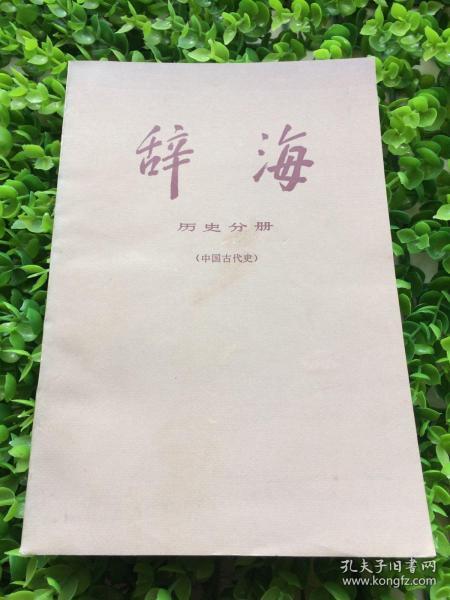 辞海
历史分册
（中国古代史）
孔夫子旧书网
www.kongfz.com